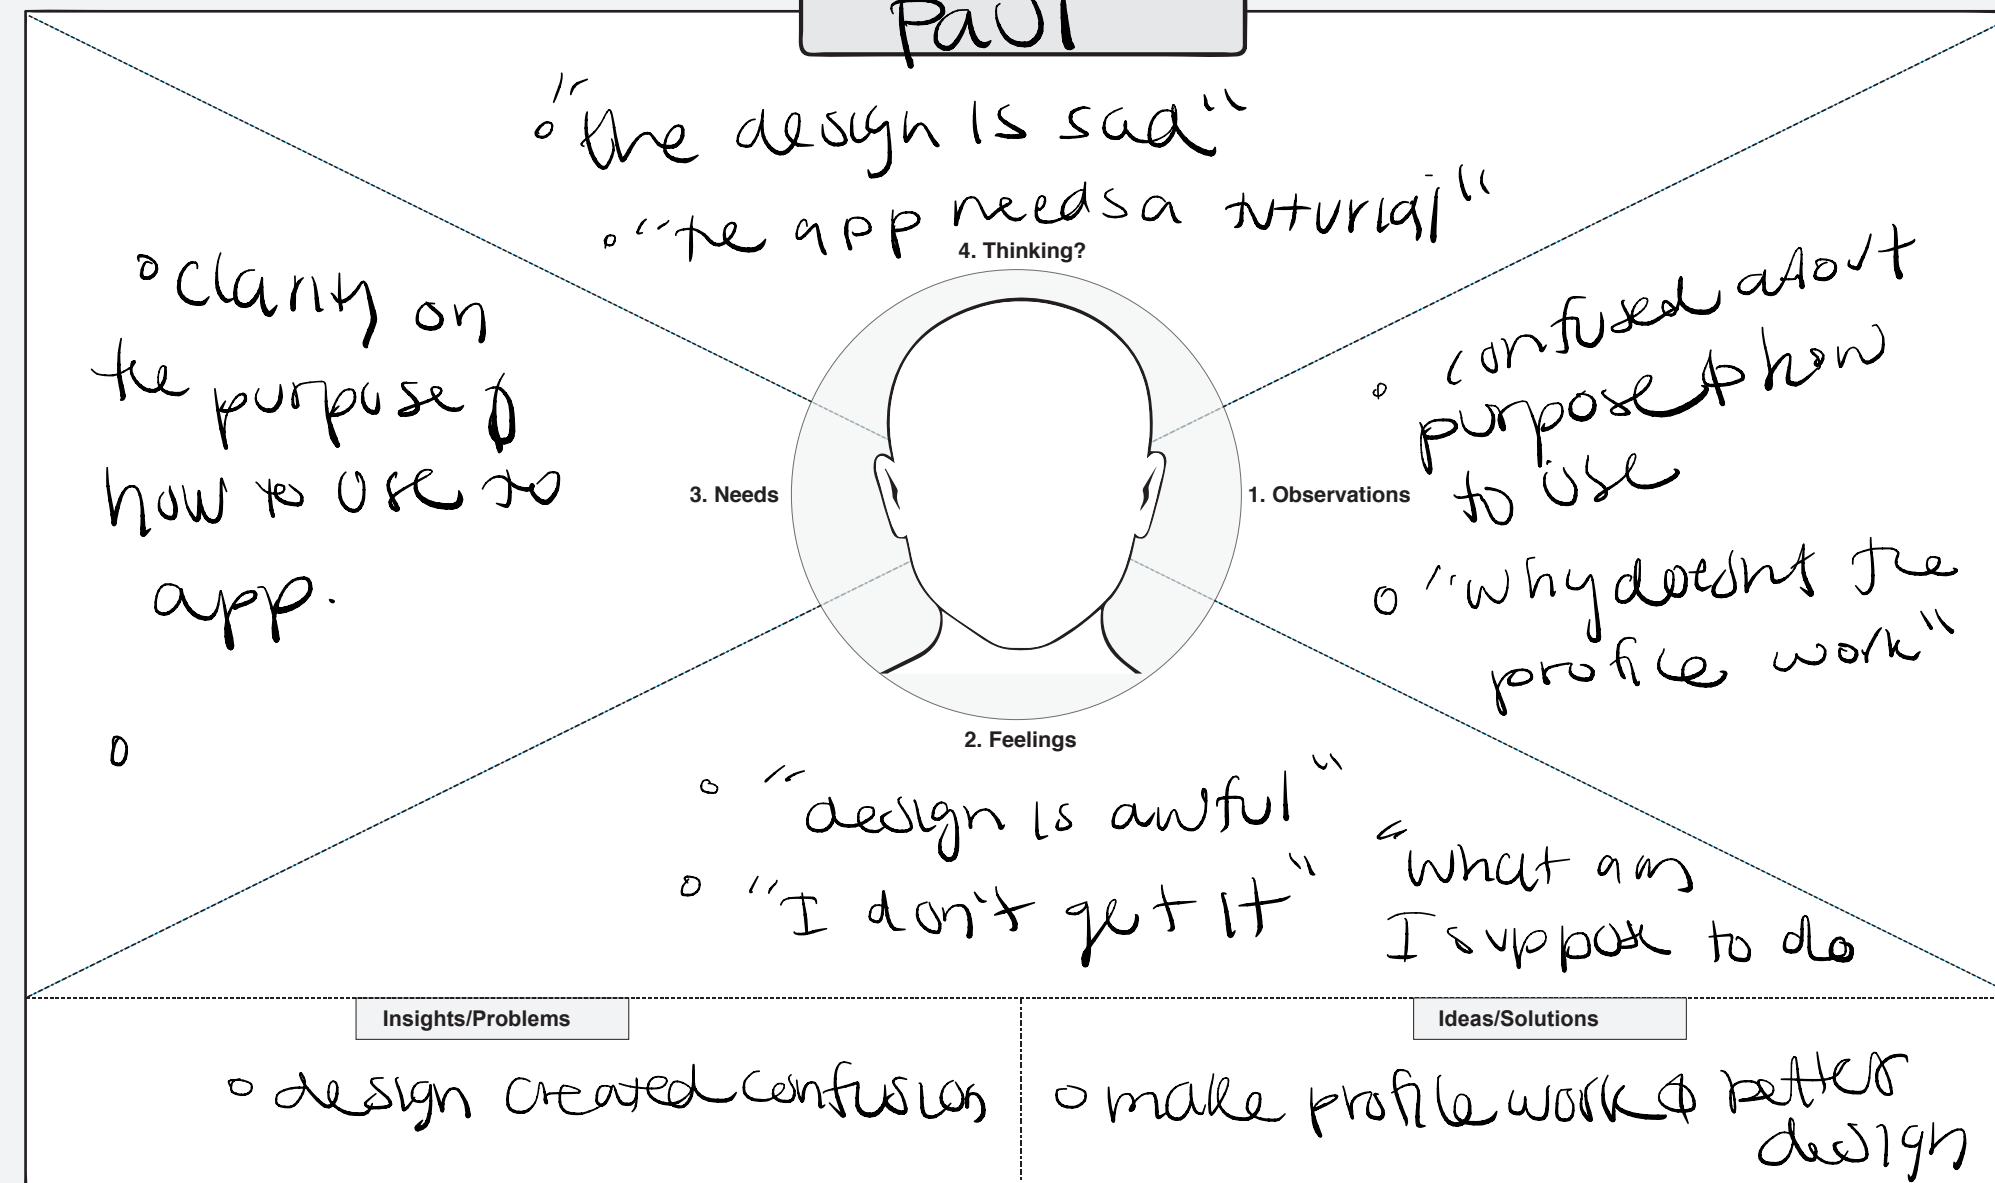 Paul
"the design is sad"
"the app needs a tuturial"
4. Thinking?
clarity on
the purpose &
how to use to
app.
3. Needs
1. Observations
confused about
purpose & how
to use
"why doesnt the
profile work"
2. Feelings
"design is awful"
"I don't get it"
"what am
I suppose to do
Insights/Problems
design created confusion
Ideas/Solutions
make profile work & better
design